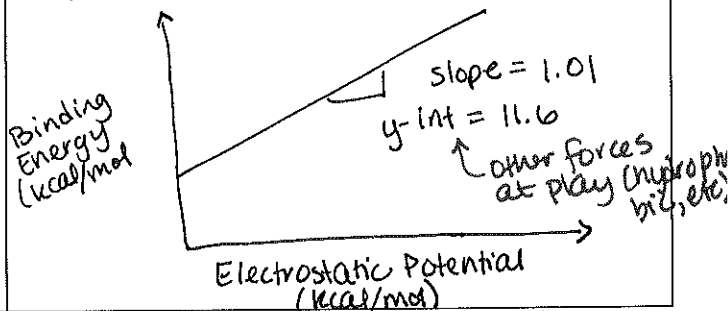 Binding
Energy
(kcal/mol
slope = 1.01
y-int = 11.6
other forces
at play (hydropho
bic, etc)
Electrostatic Potential
(kcal/mol)